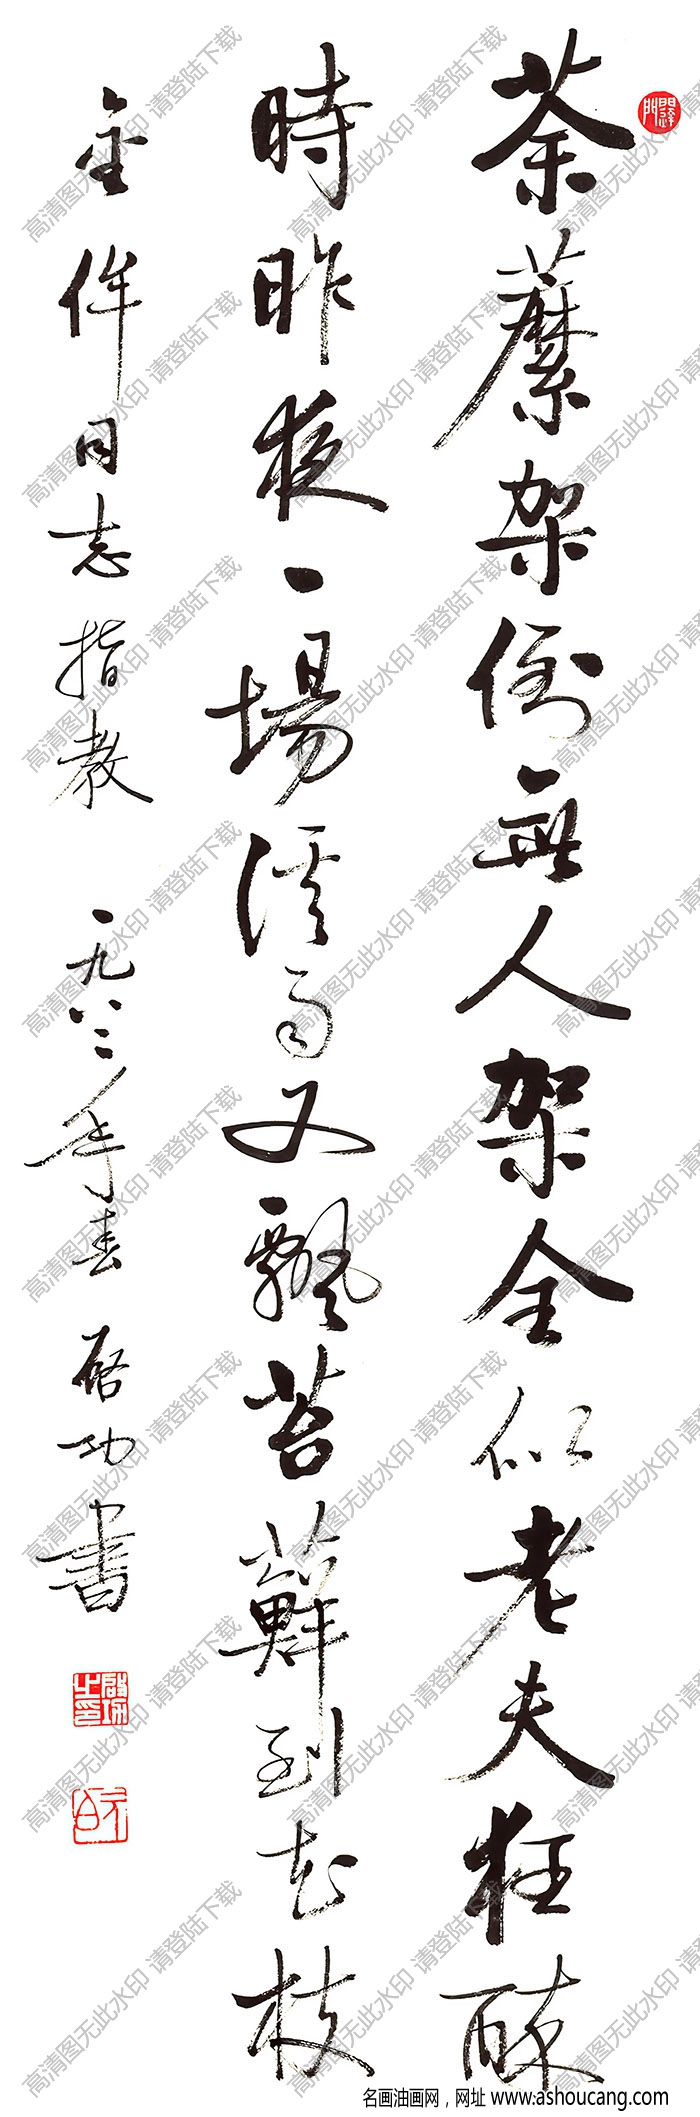 荼蘼架倒無人架全似老夫狂醉
時昨夜一場溪雨又飄苔蘚到花枝
金侔同志指教 一九八二年春 啓功書
高清图无此水印 请登陆下载
名画油画网，网址 www.ashoucang.com